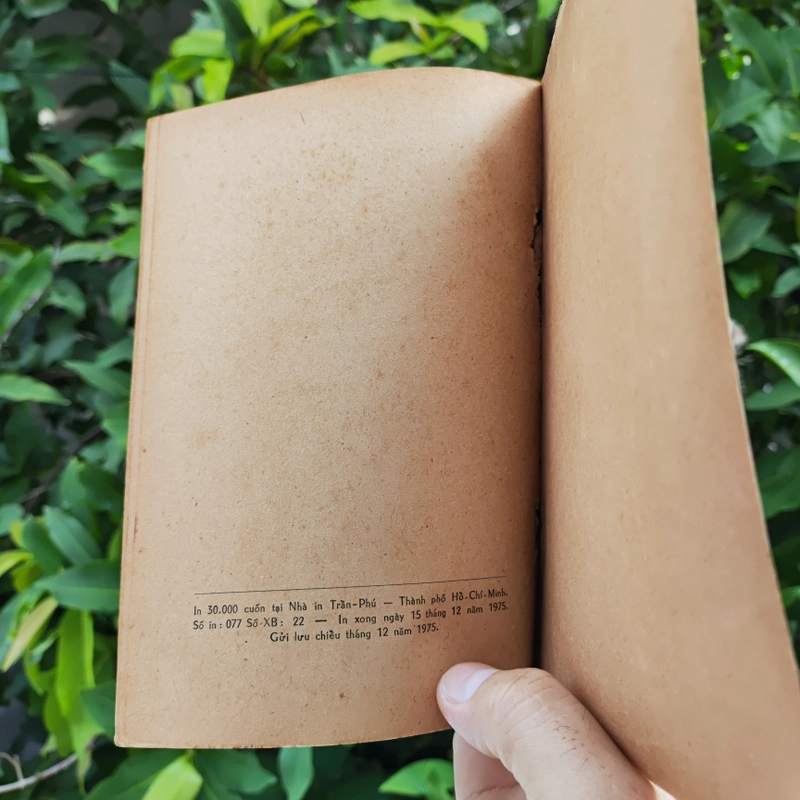 In 30.000 cuốn tại Nhà in Trần-Phú — Thành phố Hồ-Chí-Minh.
Số in : 077 Số-XB : 22 — In xong ngày 15 tháng 12 năm 1975.
Gửi lưu chiểu tháng 12 năm 1975.